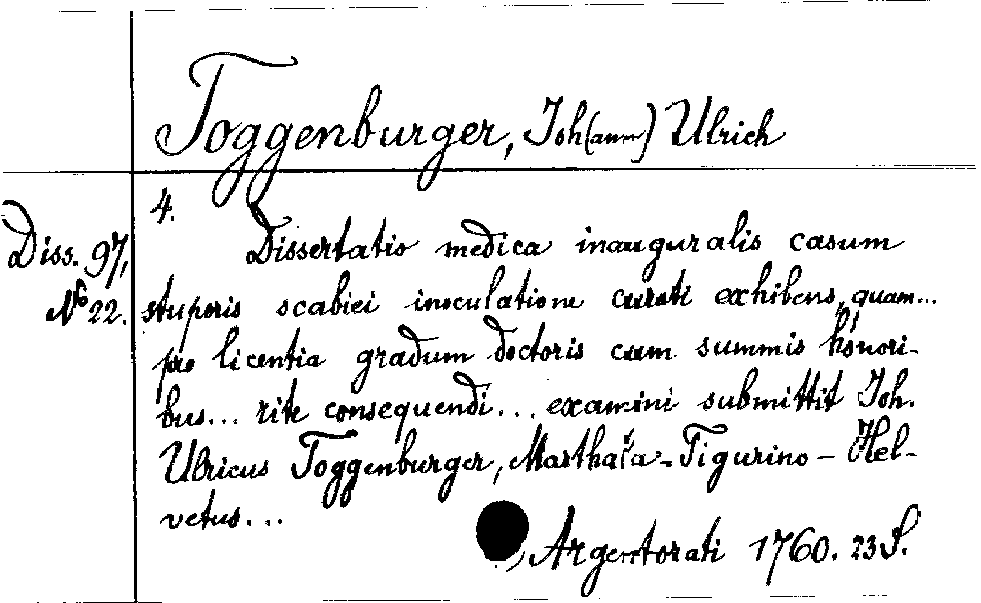 Toggenburger, Joh(ann) Ulrich
4.
Diss. 97,
No 22.
Dissertatio medica inauguralis casum
stuporis scabiei inoculatione curati exhibens, quam...
pro licentia gradum doctoris cum summis honori-
bus... rite consequendi... examini submittit Joh.
Ulricus Toggenburger, Marthala-Tigurino-Hel-
vetus...
Argentorati 1760. 23 S.